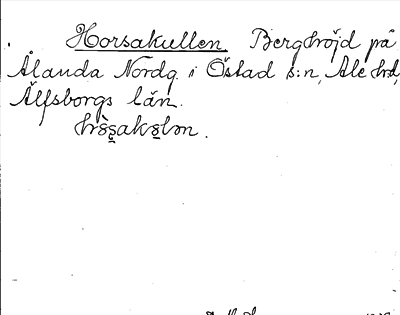 Horsakullen Berghöjd på
Ålanda Nordg. i Östad s:n, Ale hd,
Älfsborgs län.